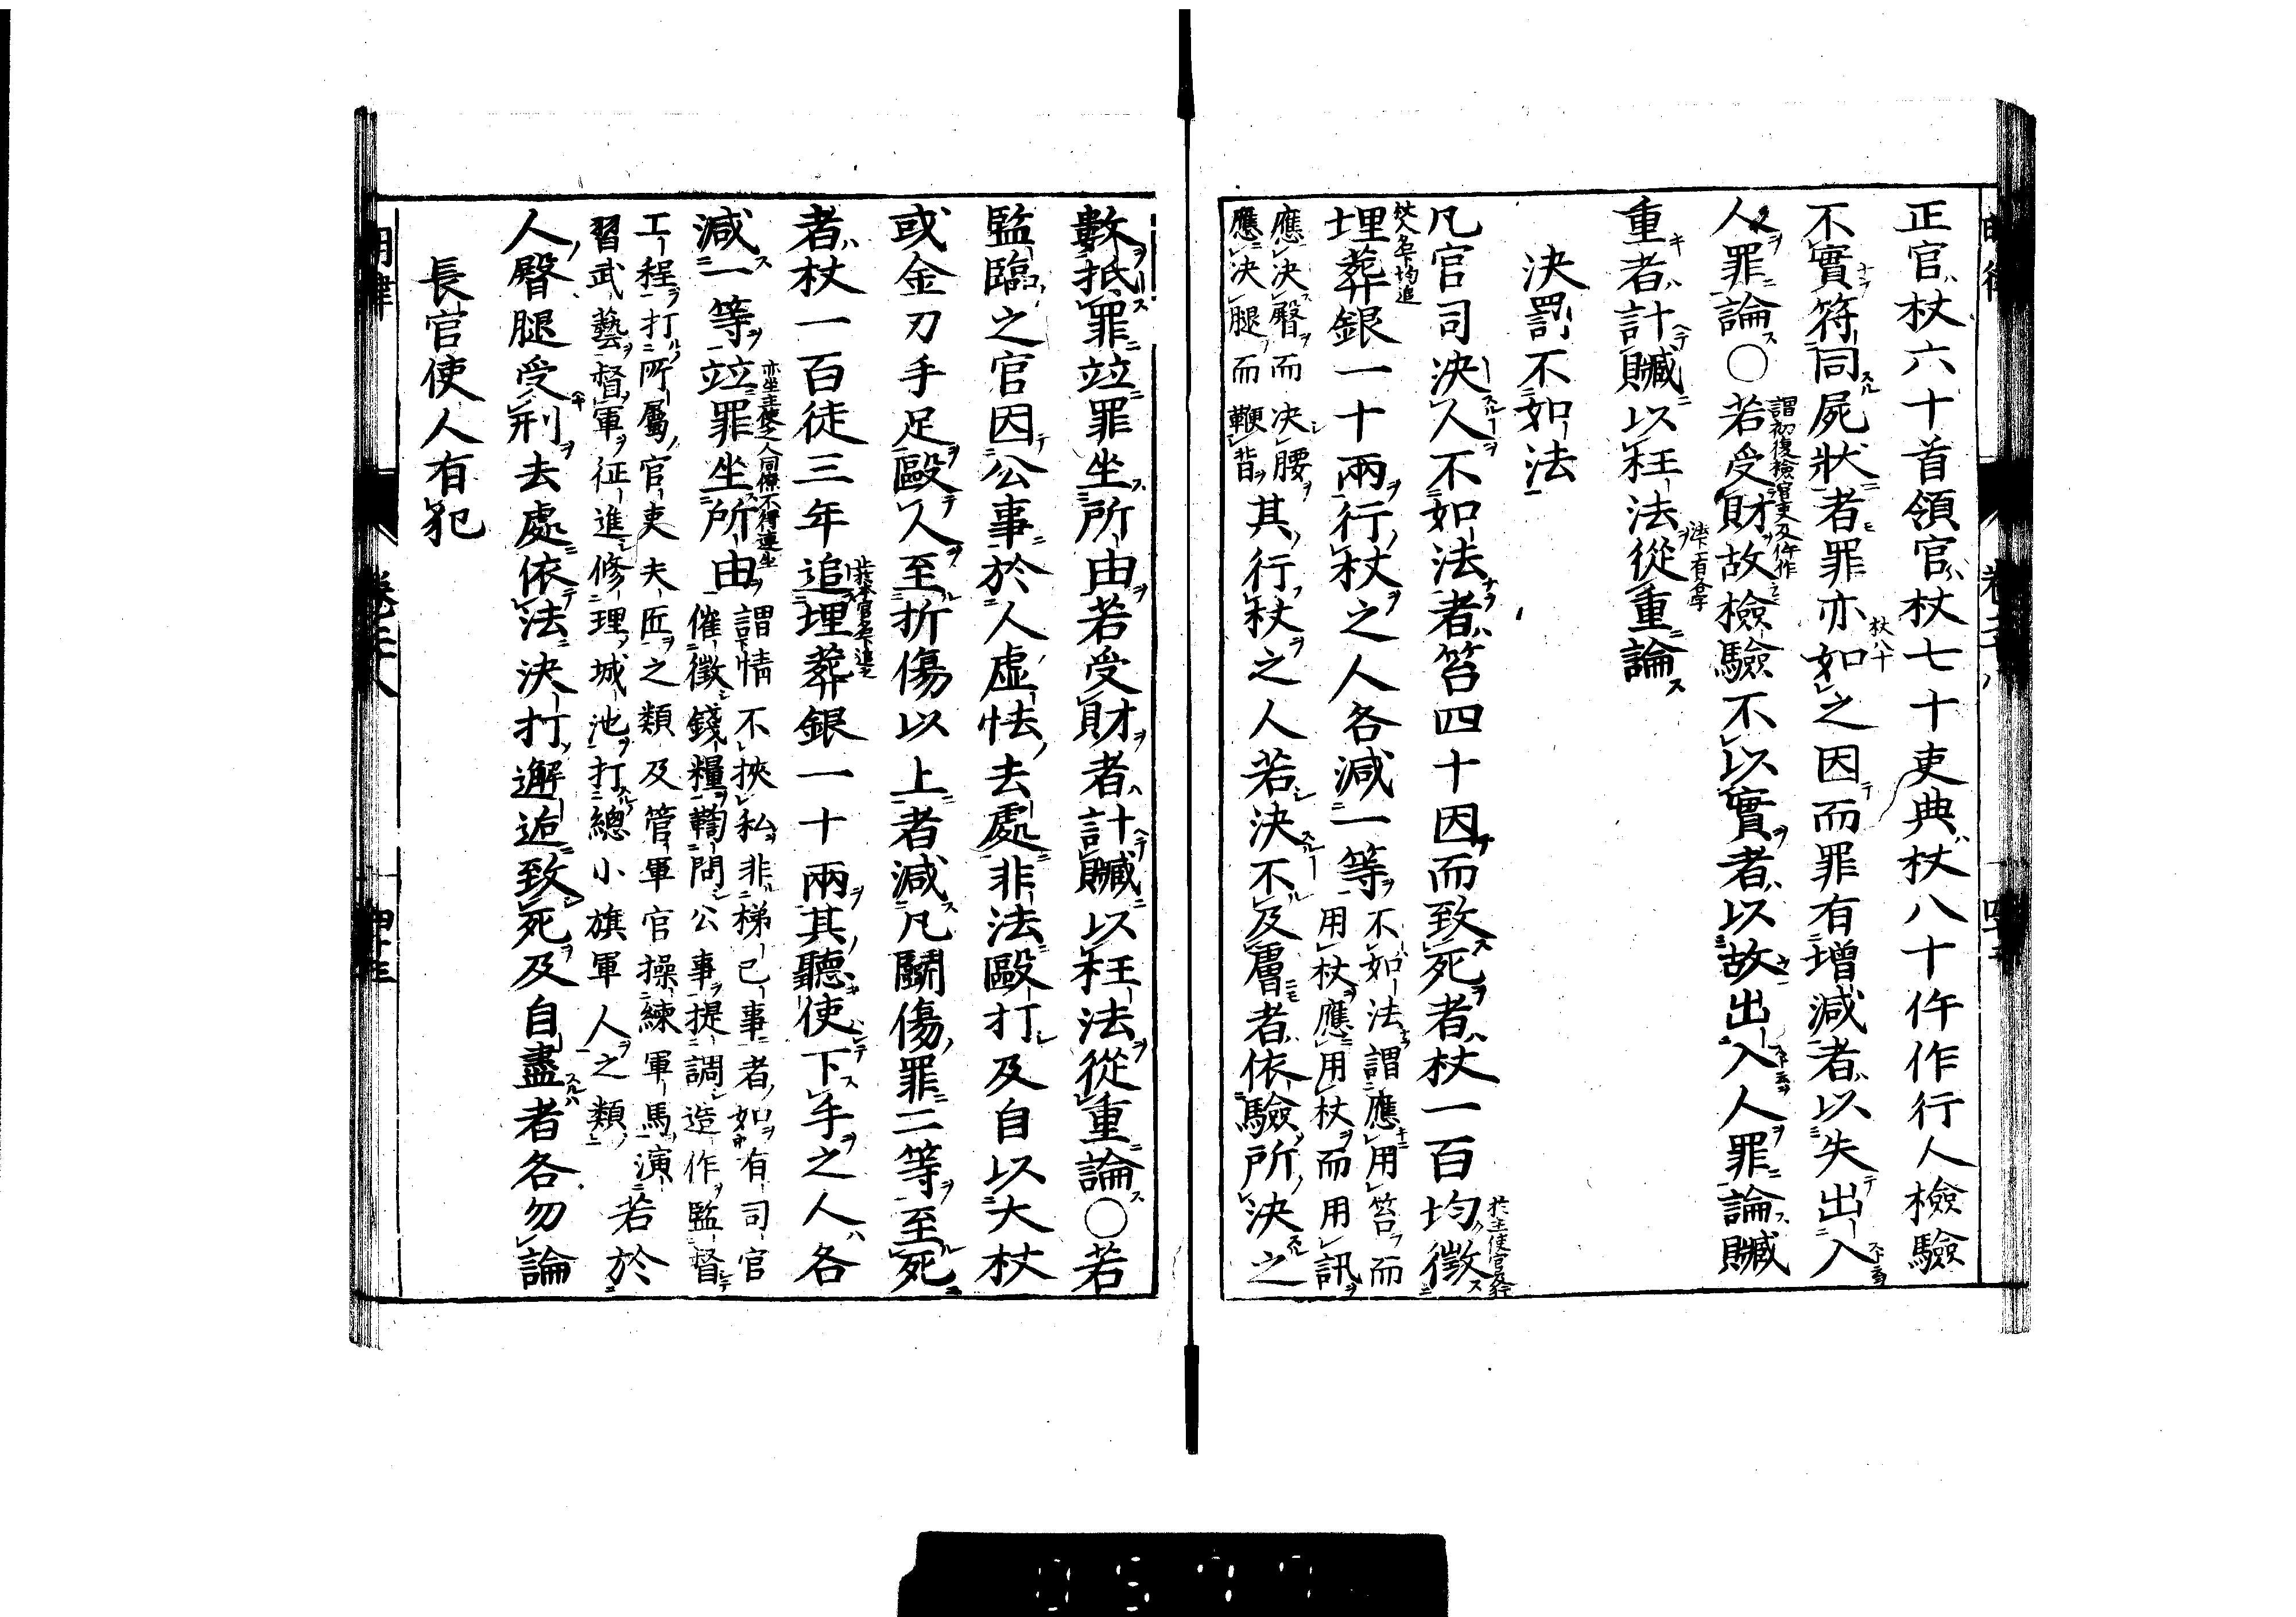 正官杖六十首領官杖七十吏典杖八十仵作行人檢驗
不實符同屍狀者罪亦如之因而罪有增減者以失出入
杖八十
人罪論〇若受財故檢驗不以實者以故出入人罪論贓
謂初復檢官吏及仵作
重者計贓以枉法從重論
決罰不如法
凡官司決人不如法者笞四十因而致死者杖一百均徵
埋葬銀一十兩行杖之人各減一等
不如法謂應用笞而
用杖應用杖而用訊
應決臀而決腰
應決腿而鞭背
其行杖之人若決不及膚者依驗所決之
數抵罪並罪坐所由若受財者計贓以枉法從重論〇若
監臨之官因公事於人虛怯去處非法毆打及自以大杖
或金刃手足毆人至折傷以上者減凡鬪傷罪二等至死
者杖一百徒三年追埋葬銀一十兩其聽使下手之人各
減一等並罪坐所由
亦坐主使之人同僚不得連坐
謂情不挾私非梯己事者如有司官
催徵錢糧鞫問公事提調造作監督
工程打所屬官吏夫匠之類及管軍官操練軍馬演
習武藝督軍征進修理城池打總小旗軍人之類
若於
人臀腿受刑去處依法決打邂逅致死及自盡者各勿論
長官使人有犯
明律